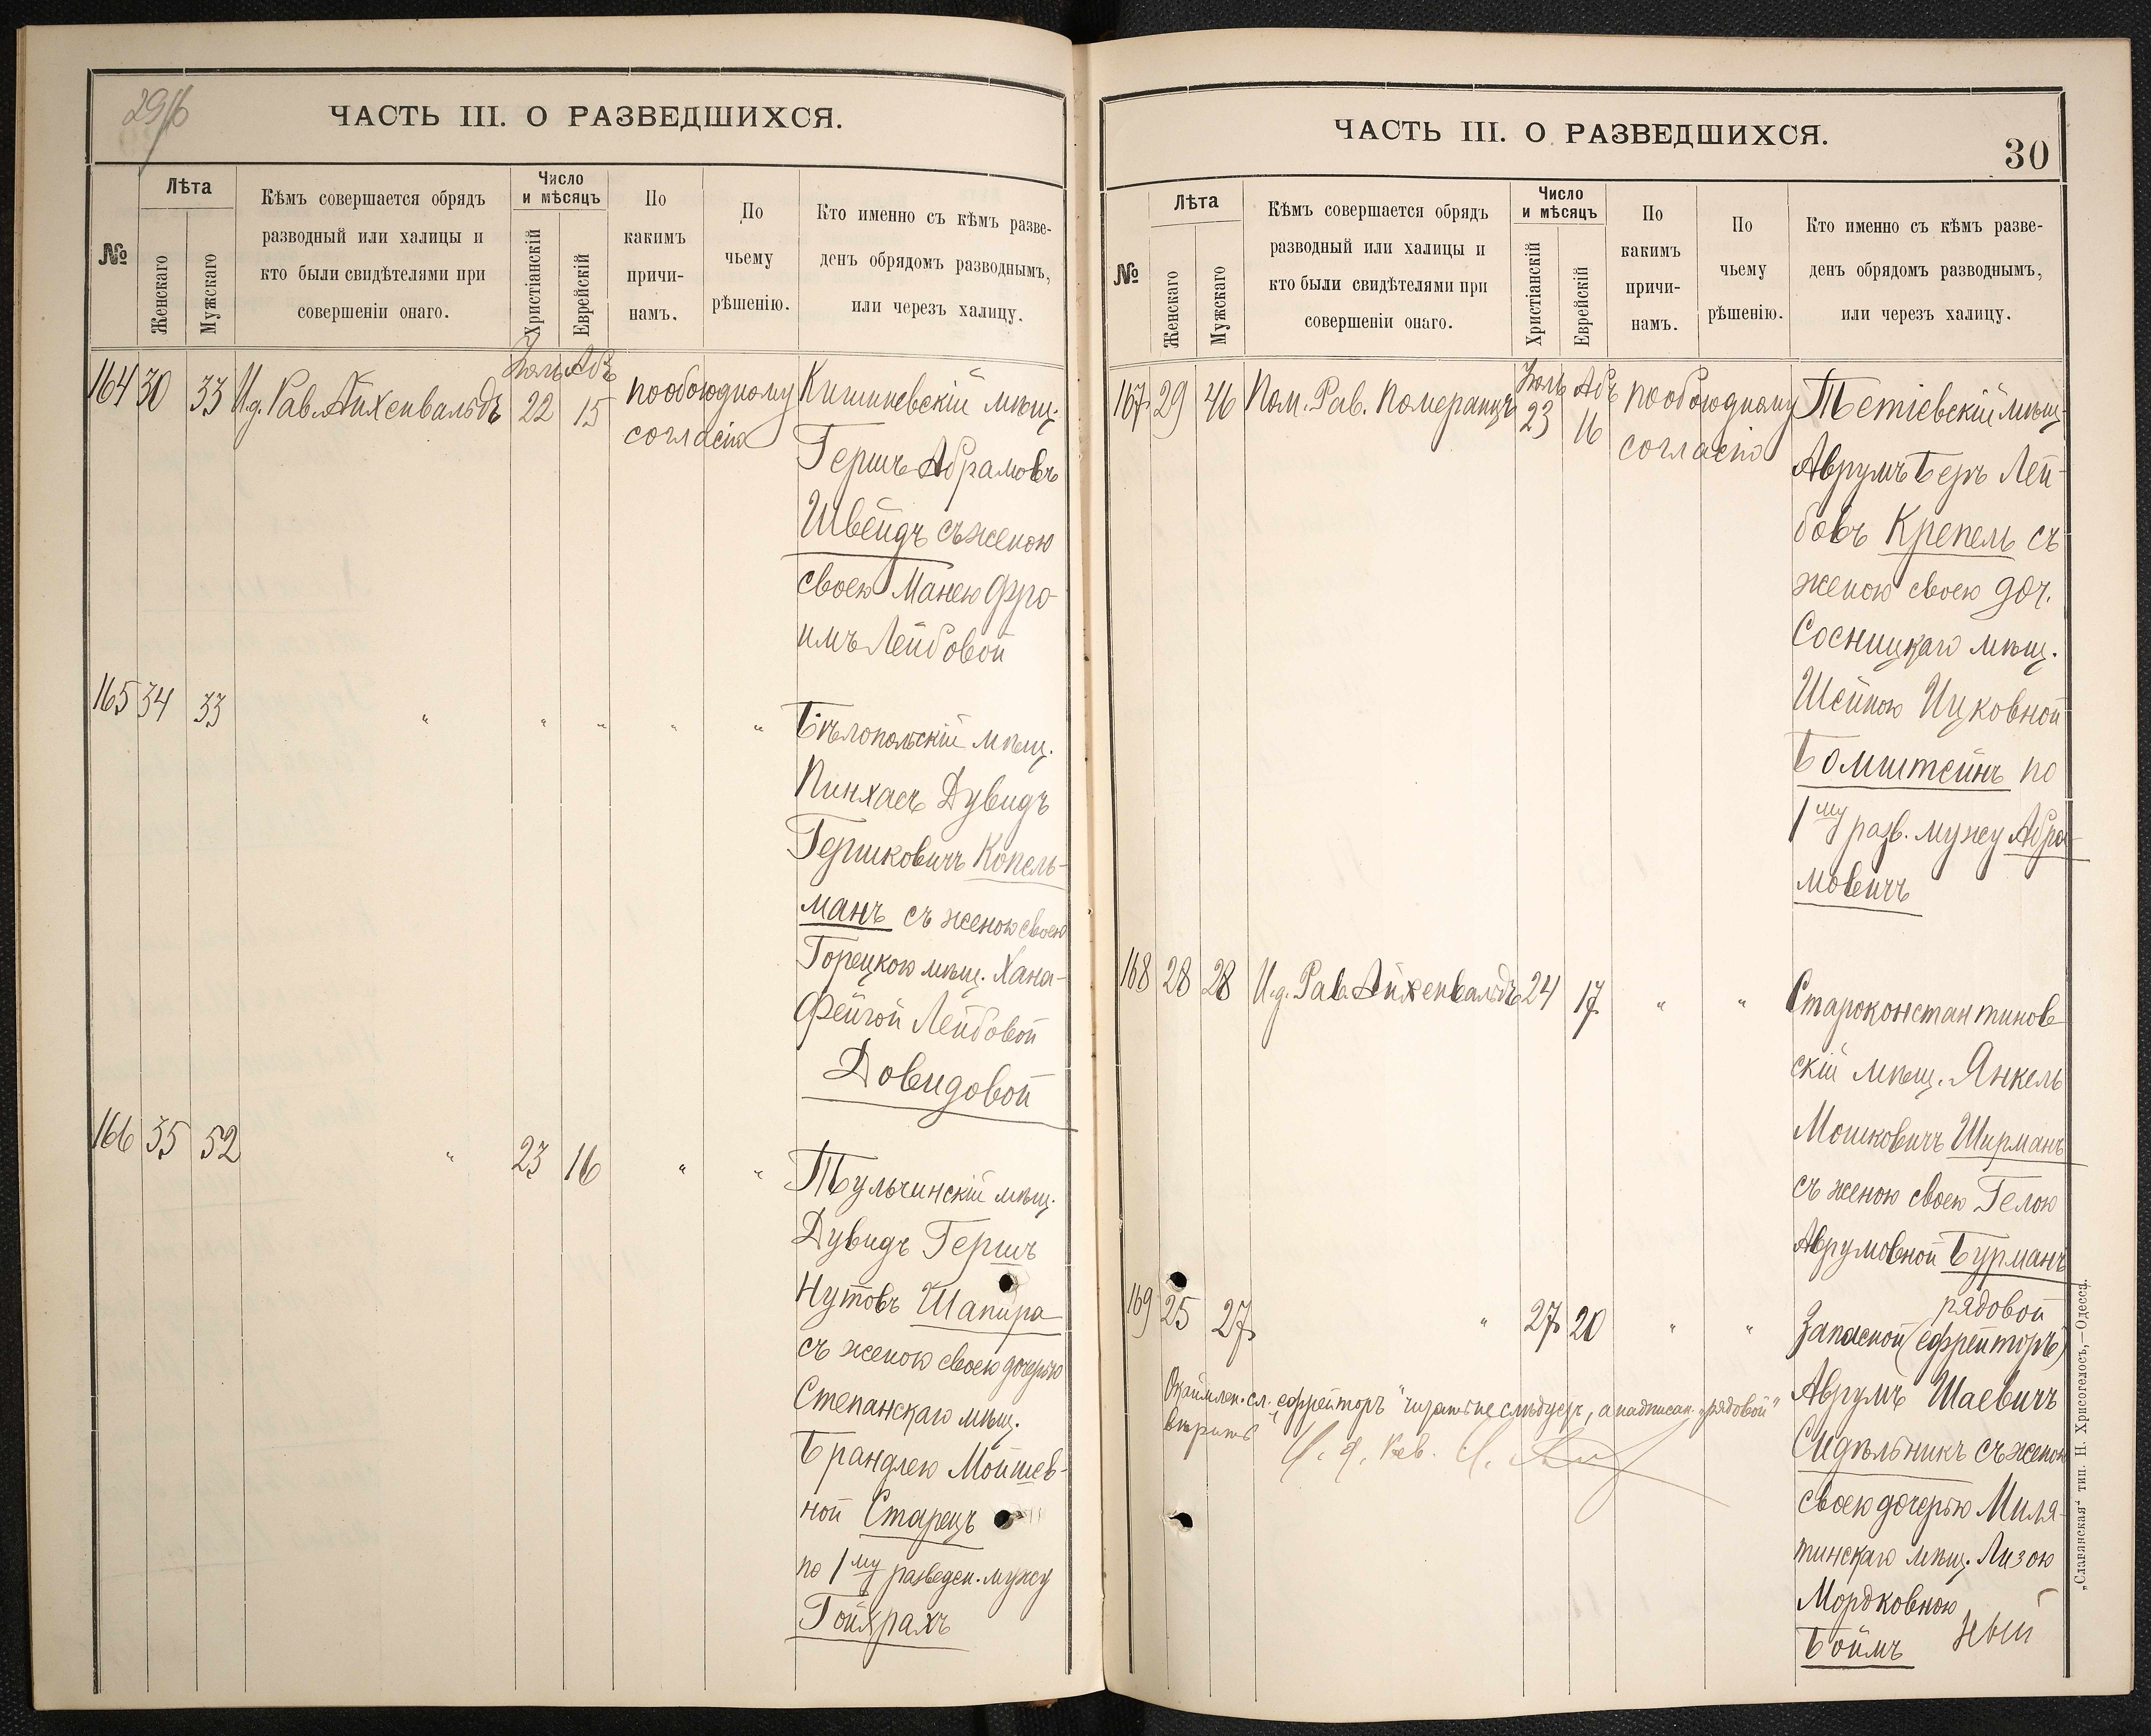 29
ЧАСТЬ III. О РАЗВЕДШИХСЯ.
№
Лѣта
Женскаго
Мужскаго
Кѣмъ совершается обрядъ
разводный или халицы и
кто были свидѣтелями при
совершеніи онаго.
Число
и мѣсяцъ
Христіанскій
Еврейскій
По
какимъ
причи-
намъ.
По
чьему
рѣшенію.
Кто именно съ кѣмъ разве-
денъ обрядомъ разводнымъ,
или черезъ халицу.
164 30 33 И.д. Рав. Айхенвальдъ Іюль 22 Абъ 15 по обоюдному
согласію
Кишиневскій мѣщ.
Гершъ Абрамовъ
Швейдъ съ женою
своею Манею Фро-
имъ Лейбовой
165 34 33 " " " " "
Бѣлопольскій мѣщ.
Пинхасъ Дувидъ
Гершковичъ Копель-
манъ съ женою своею
Горецкою мѣщ. Хана-
Фейгой Лейбовой
Довидовой
166 35 52 " 23 16 " "
Тульчинскій мѣщ.
Дувидъ Гершъ
Нутовъ Шапира
съ женою своею дочерью
Степанскаго мѣщ.
Брандлею Мойшев-
ной Старецъ
по 1му разведен. мужу
Гойхрахъ
ЧАСТЬ III. О РАЗВЕДШИХСЯ.
30
№
Лѣта
Женскаго
Мужскаго
Кѣмъ совершается обрядъ
разводный или халицы и
кто были свидѣтелями при
совершеніи онаго.
Число
и мѣсяцъ
Христіанскій
Еврейскій
По
какимъ
причи-
намъ.
По
чьему
рѣшенію.
Кто именно съ кѣмъ разве-
денъ обрядомъ разводнымъ,
или черезъ халицу.
167 29 46 Пом. Рав. Померанцъ Іюль 23 Абъ 16 по обоюдному
согласію
Тетіевскій мѣщ.
Аврумъ Беръ Лей-
бовъ Крепель съ
женою своею доч.
Сосницкаго мѣщ.
Шейною Ицковной
Бомштейнъ по
1му разв. мужу Абра-
мовичъ
168 28 28 И.д. Рав. Айхенвальдъ 24 17 " "
Староконстантинов-
скій мѣщ. Янкель
Мошковичъ Ширманъ
съ женою своею Гелою
Аврумовной Бурманъ
169 25 27 " 27 20 " "
рядовой
Запасной (ефрейторъ)
Аврумъ Шаевичъ
Сидѣльникъ съ женою
своею дочерью Миля-
тинскаго мѣщ. Лизою
Мордковною
Боймъ
сл. „ефрейторъ" читать не слѣдуетъ, а надписан. „рядовой"
вѣрить
И. д. Рав.
„Славянская" тип. Н. Хрисогелосъ,—Одесса.